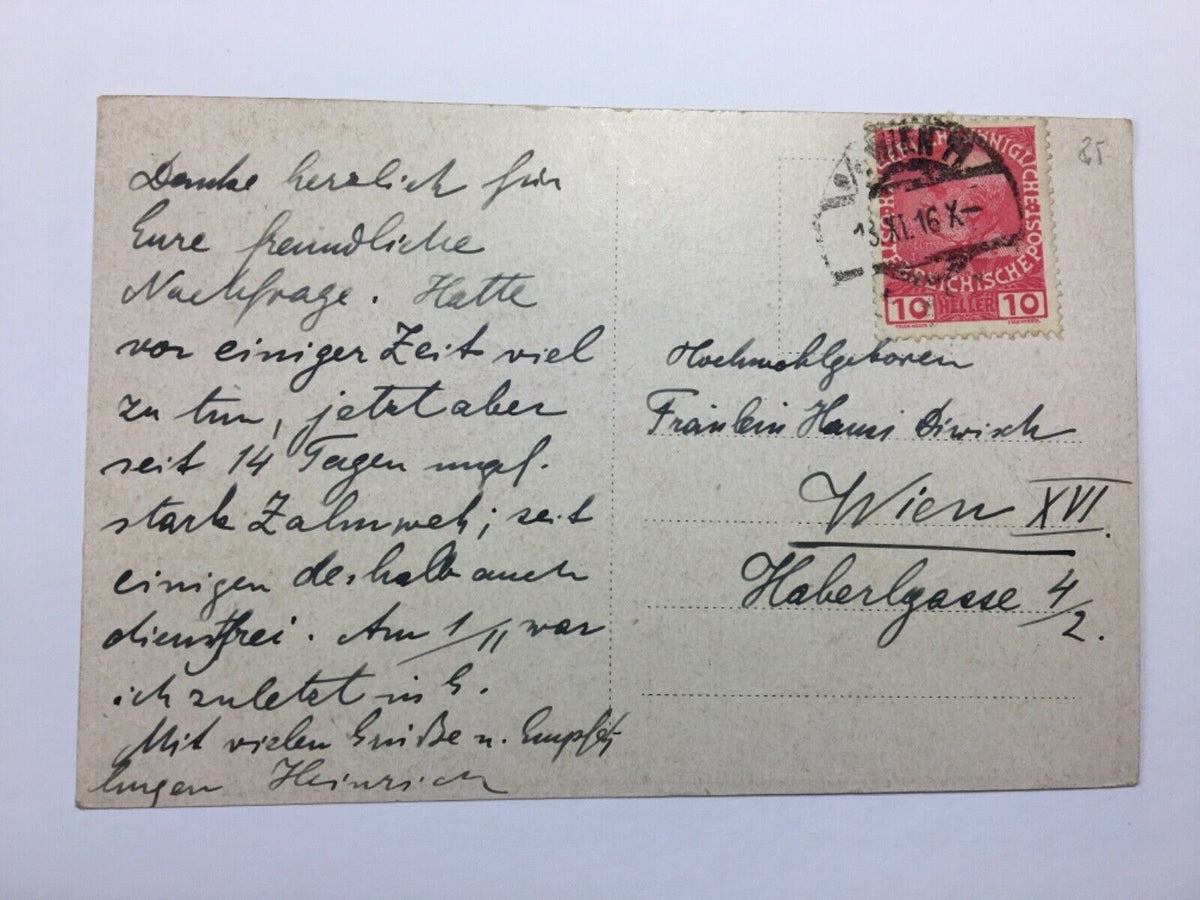 Danke herzlich für
Eure freundliche
Nachfrage. Hatte
vor einiger Zeit viel
zu tun, jetzt aber
seit 14 Tagen
stark Zahnweh; seit
einigen deshalb auch
dienstfrei. Am 1/11 war
ich zuletzt in G.
Mit vielen Grüße u. Empfeh
lungen Heinrich
85
WIEN
13.XI.16 X–
KÖNIGLICHE·
ÖSTERREICHISCHE POST
10 HELLER 10
Hochwohlgeboren
Fräulein Hansi Diwisch
Wien XVI.
Haberlgasse 4/2.